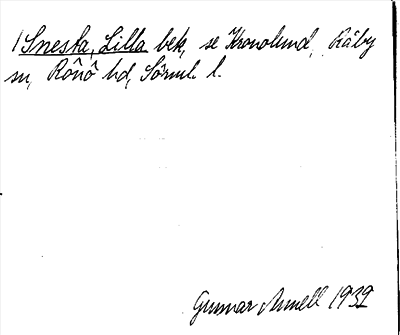 / Snesta, Lilla bek, se Kronolund, Råby
sn, Rönö hd, Sörml. l.
Gunnar Annell 1932